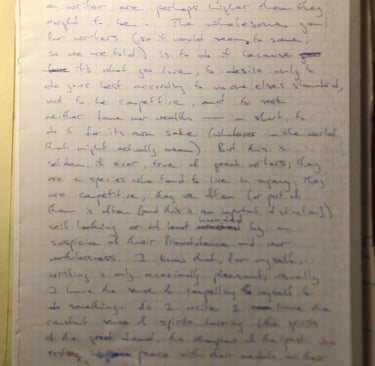 a writer are perhaps higher than they
ought to be. The wholesome goal
for writers (so it would seem, to some,
so we are told) is to do it because
it's what you love, to desire only to
do your best according to no one else's standard,
not to be competitive, and to seek
neither fame nor wealth — in short, to
do it for its own sake (whatever in the world
that might actually mean). But this is
seldom, if ever, true of great writers; they
are a species who tend to live in agony. They
are competitive, they are often (or part of
them is often [and this is an important distinction])
self-loathing or at least haunted by an
suspicion of their fraudulence and
worthlessness. I know that, for myself,
writing is only occasionally pleasant; usually
I have the sense of compelling myself to
do something. As I write I have the
constant sense of spirits hovering (the spirits
of the great dead, the champions of the past
resting, peace with their medals on their